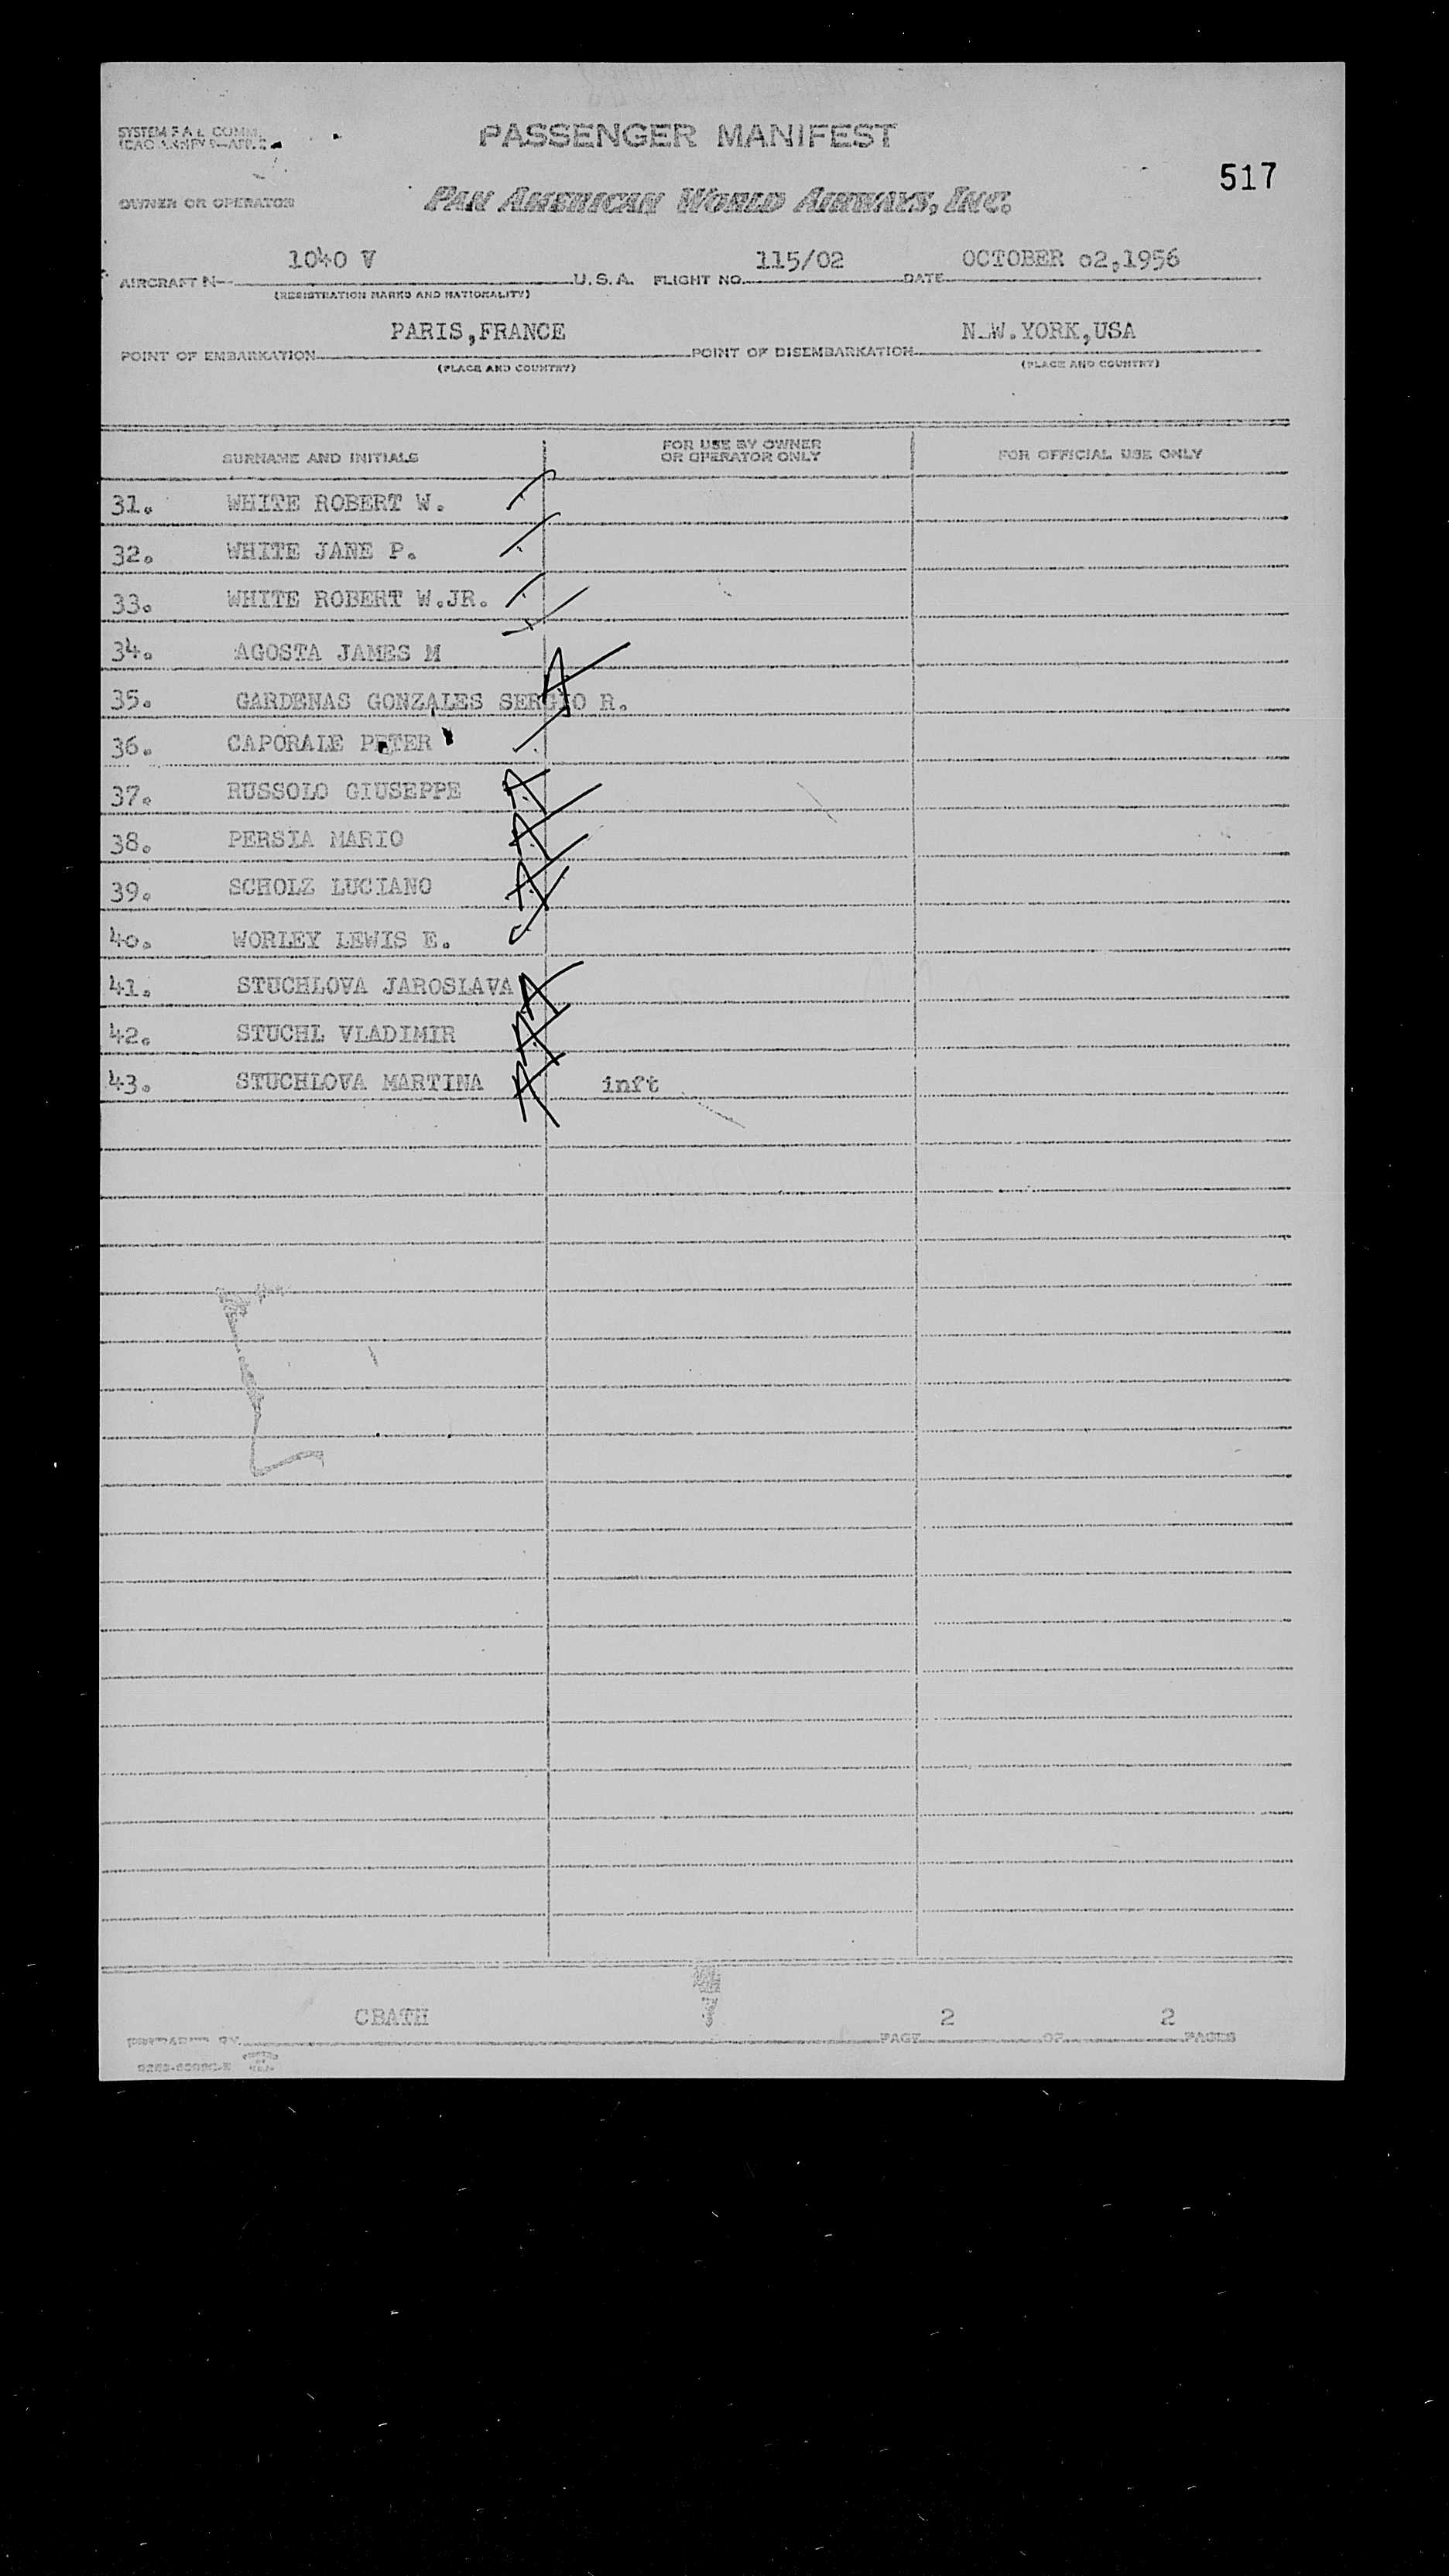 SYSTEM F.A.L. COMM.
PASSENGER MANIFEST
517
OWNER OR OPERATOR
PAN AMERICAN WORLD AIRWAYS, INC.
1040 V 115/02 OCTOBER 02,1956
AIRCRAFT N— U.S.A. FLIGHT NO. DATE
(REGISTRATION MARKS AND NATIONALITY)
PARIS,FRANCE N.W.YORK,USA
POINT OF EMBARKATION POINT OF DISEMBARKATION
(PLACE AND COUNTRY) (PLACE AND COUNTRY)
SURNAME AND INITIALS FOR USE BY OWNER OR OPERATOR ONLY FOR OFFICIAL USE ONLY
31. WHITE ROBERT W.
32. WHITE JANE P.
33. WHITE ROBERT W.JR.
34. AGOSTA JAMES M
35. GARDENAS GONZALES SERGIO R. A
36. CAPORALE PETER
37. RUSSOLO GIUSEPPE A
38. PERSIA MARIO A
39. SCHOLZ LUCIANO A
40. WORLEY LEWIS E.
41. STUCHLOVA JAROSLAVA A
42. STUCHL VLADIMIR A
43. STUCHLOVA MARTINA A inft
CBATH 2 2
PREPARED BY PAGE OF PAGES